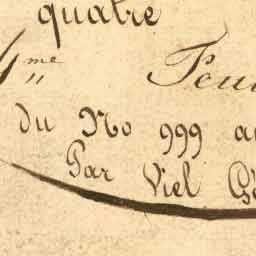 quatre
4me
du No 999 au
Par Viel